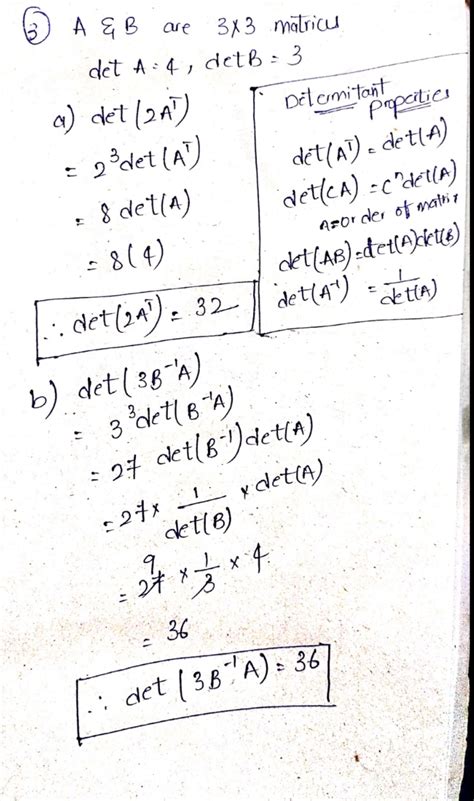 ③ A & B are 3×3 matrices
det A = 4, det B = 3
a) det(2Aᵀ)
= 2³ det(Aᵀ)
= 8 det(A)
= 8(4)
∴ det(2Aᵀ) = 32
Determitant
Properties
det(Aᵀ) = det(A)
det(CA) = Cⁿ det(A)
n=order of matrix
det(AB) = det(A)det(B)
det(A⁻¹) = 1/det(A)
b) det(3B⁻¹A)
= 3³ det(B⁻¹A)
= 27 det(B⁻¹) det(A)
= 27 × 1/det(B) × det(A)
9
= 27 × 1/3 × 4
= 36
∴ det(3B⁻¹A) = 36